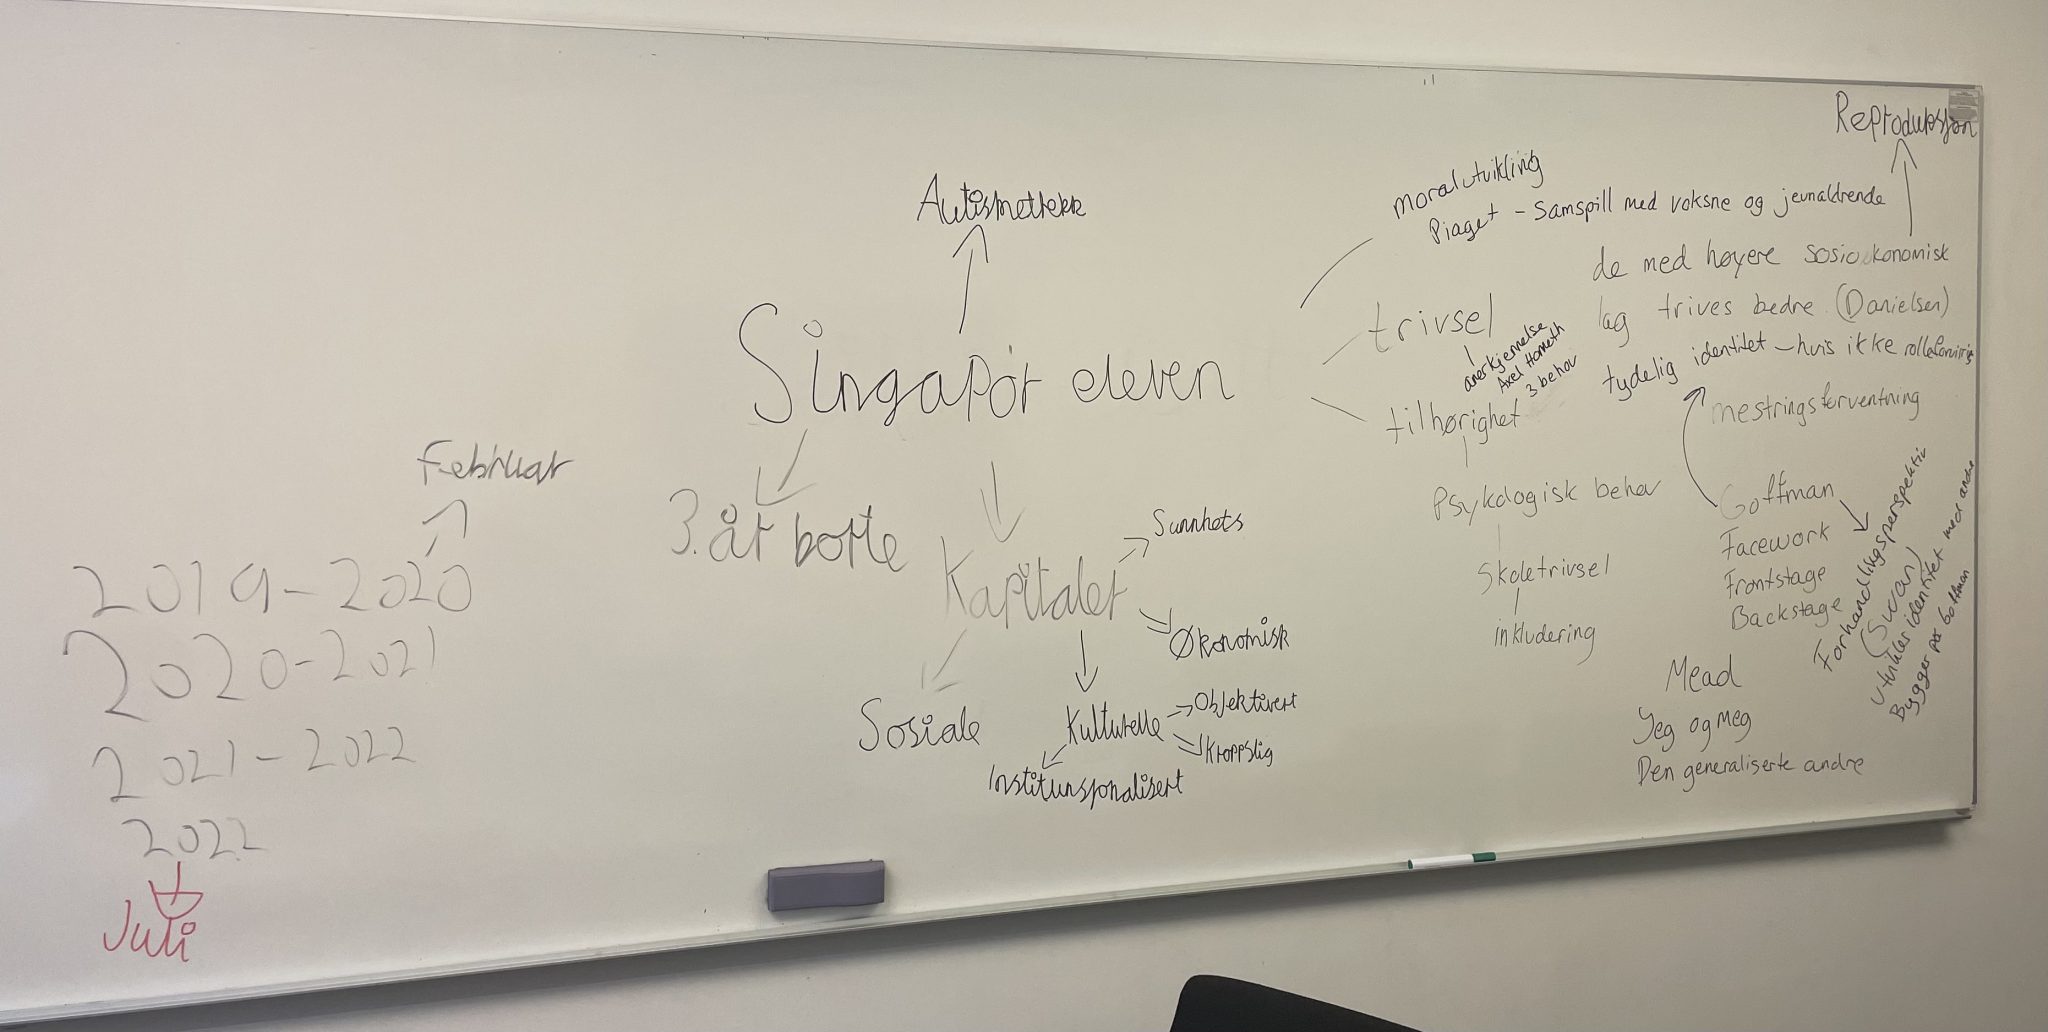 Reproduksjon
moralutvikling
Piaget - Samspill med voksne og jevnaldrende
Autismetrekk
de med høyere sosioøkonomisk
lag trives bedre (Danielsen)
trivsel
anerkjennelse
Axel Honneth
3 behov
tydelig identitet - hvis ikke
Singapor eleven
tilhørighet
mestringsforventning
Februar
3. år borte
Psykologisk behov
Goffman
Facework
Frontstage
Backstage
Forhandlingsperspektiv
(Swan)
utvikler identitet med andre
Bygger på
Sunnhets
Kapitalet
Økonomisk
Skoletrivsel
inkludering
2019-2020
2020-2021
2021-2022
2022
Juli
Sosiale
Kulturelle
Objektivert
Kroppslig
Institunsjonalisert
Mead
Jeg og meg
Den generaliserte andre